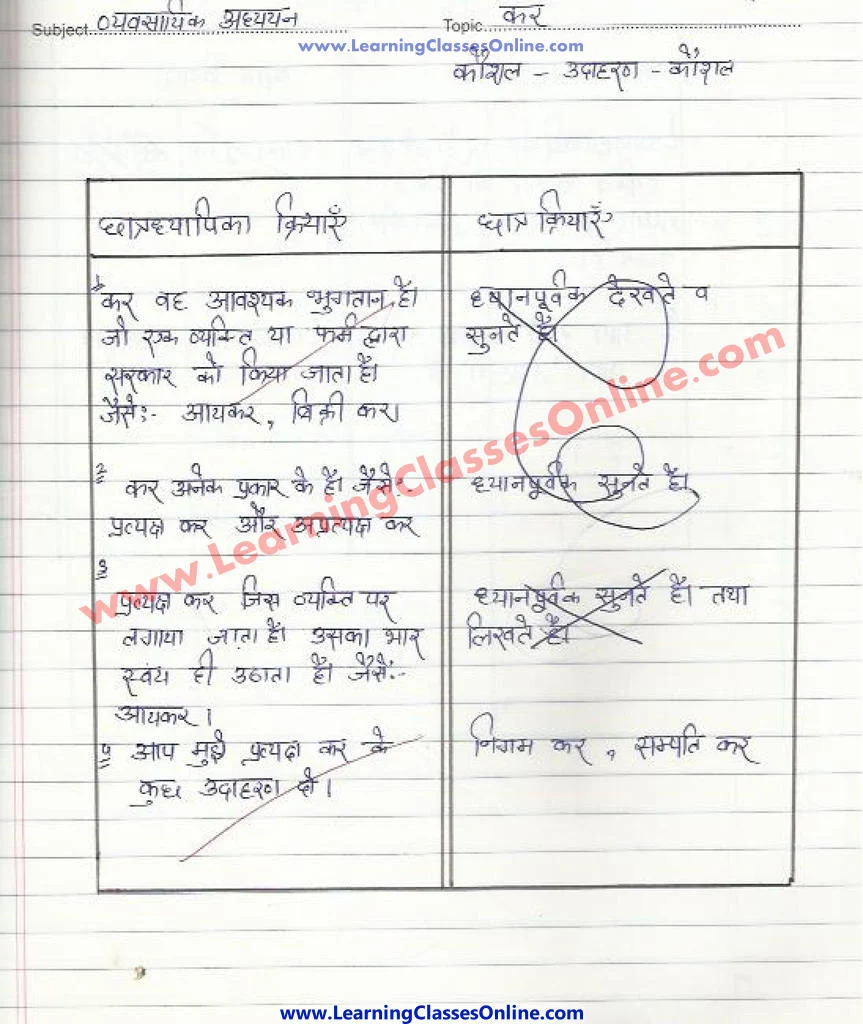 Subject व्यवसायिक अध्ययन Topic कर
www.LearningClassesOnline.com
कौशल - उदाहरण - कौशल
छात्रध्यापिका क्रियाएँ
छात्र क्रियाएँ
1 कर वह आवश्यक भुगतान है।
जो एक व्यक्ति या फर्म द्वारा
सरकार को किया जाता है।
जैसे:- आयकर, बिक्री कर।
ध्यानपूर्वक देखते व
सुनते है।
2 कर अनेक प्रकार के है। जैसे:-
प्रत्यक्ष कर और अप्रत्यक्ष कर
ध्यानपूर्वक सुनते है।
3
प्रत्यक्ष कर जिस व्यक्ति पर
लगाया जाता है। उसका भार
स्वंय ही उठाता है। जैसे:-
आयकर।
ध्यानपूर्वक सुनते है। तथा
लिखते है।
4 आप मुझे प्रत्यक्ष कर के
कुछ उदाहरण दो।
निगम कर, सम्पति कर
www.LearningClassesOnline.com
www.LearningClassesOnline.com